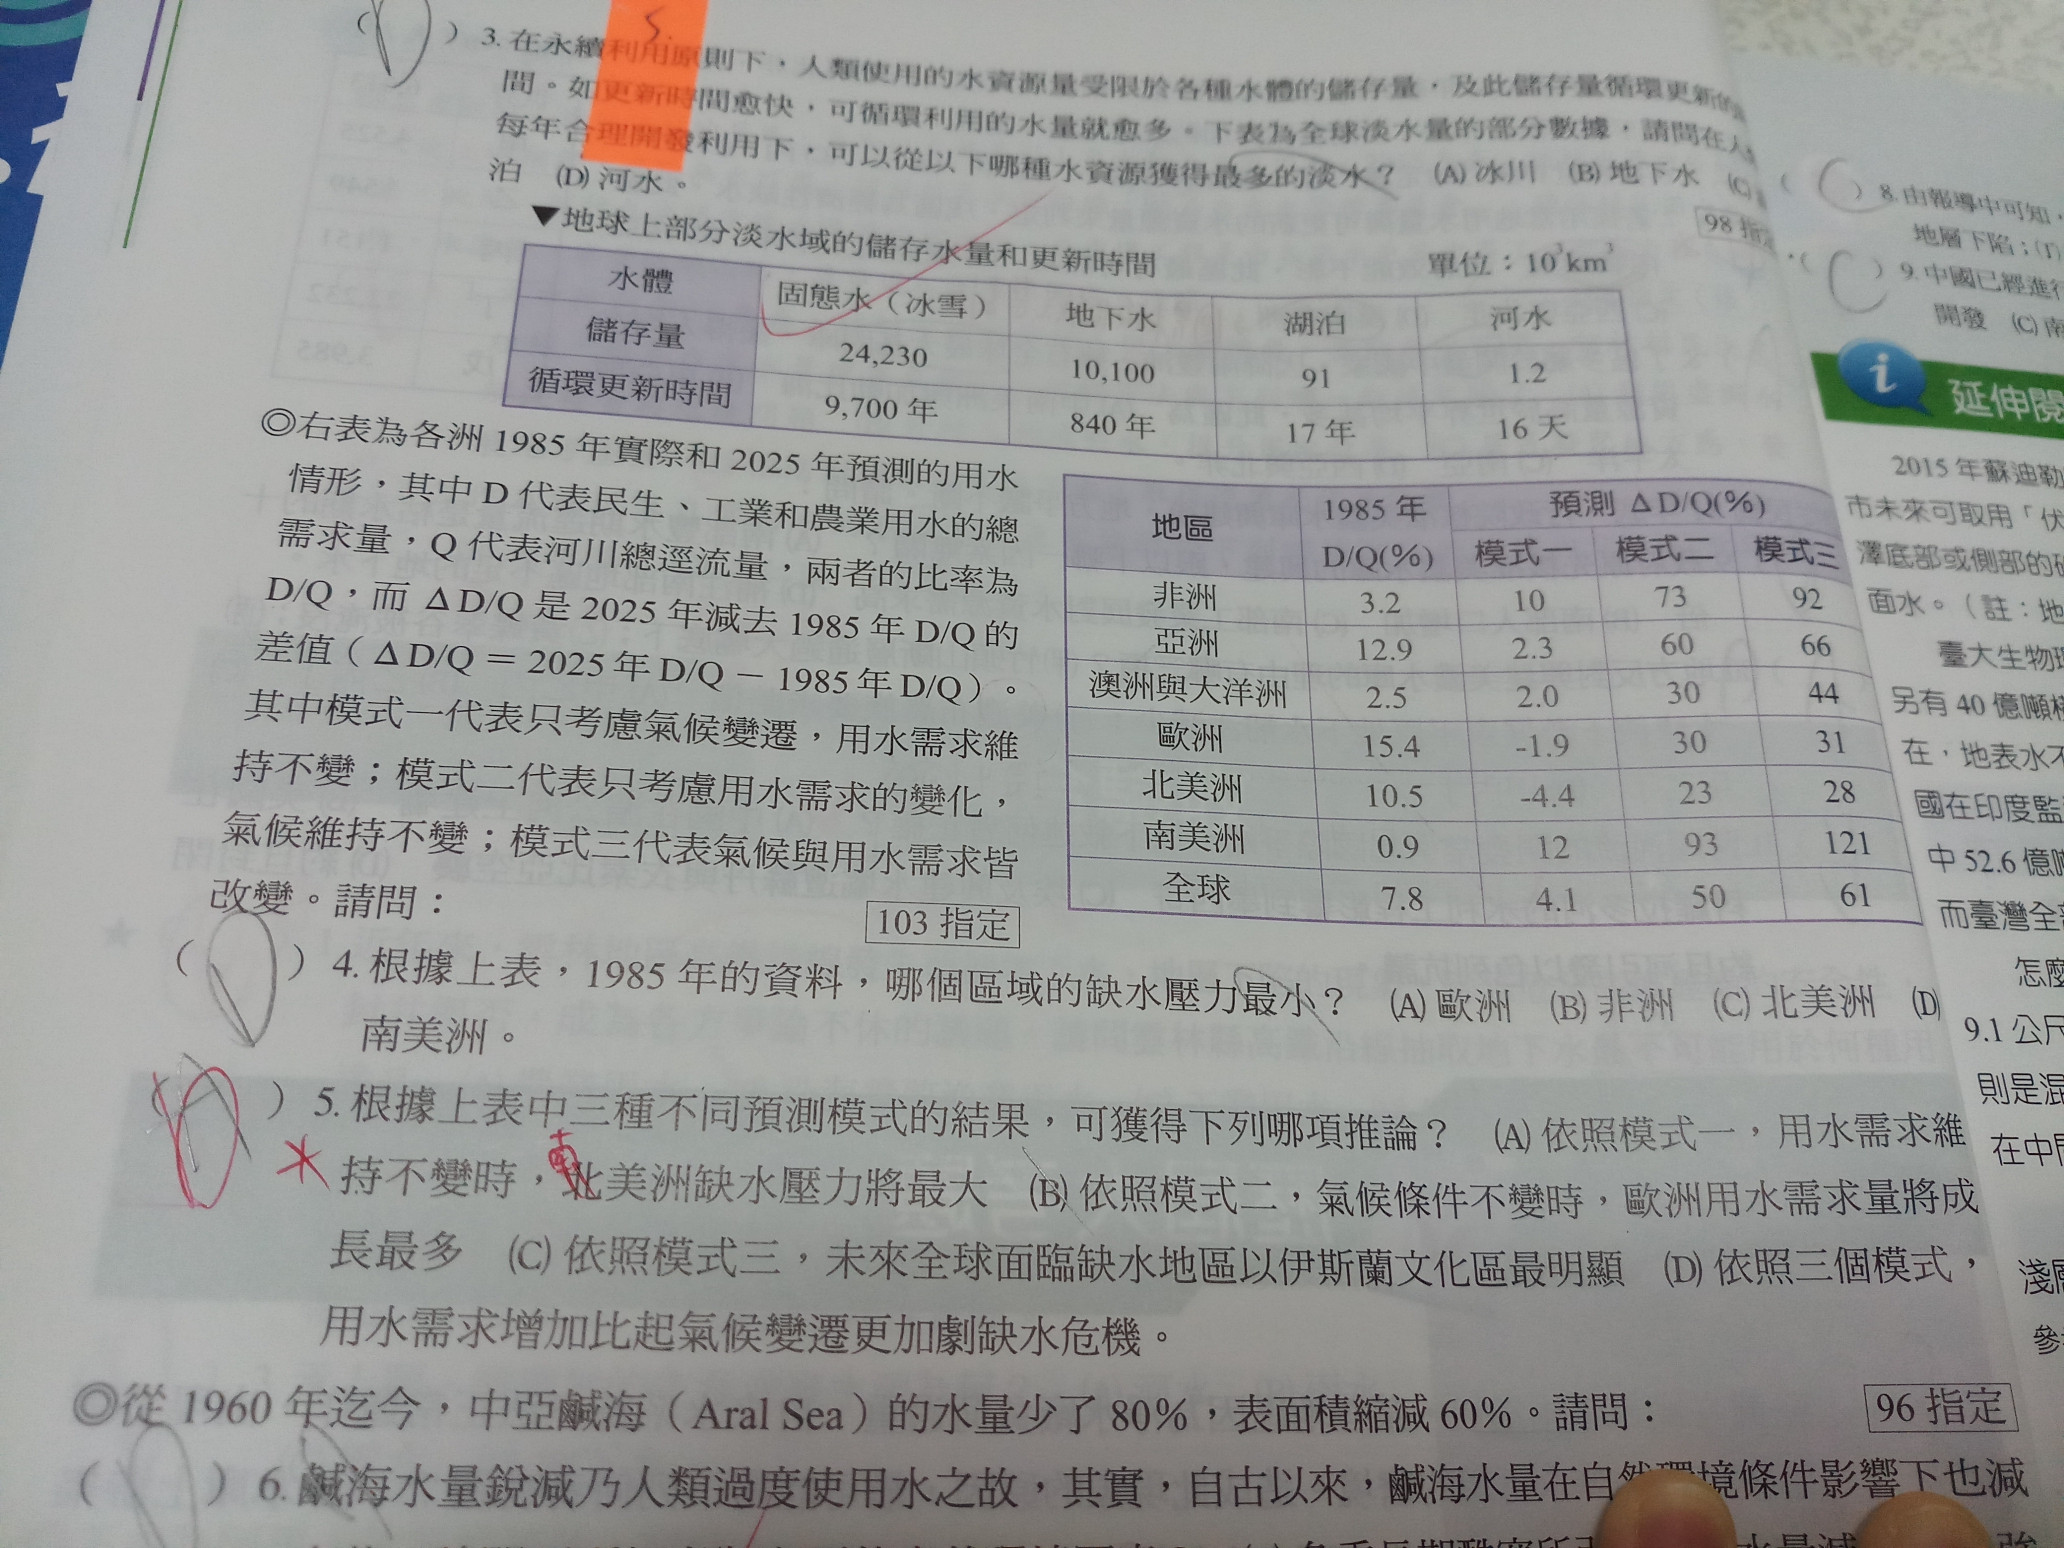 ( D ) 3. 在永續利用原則下，人類使用的水資源量受限於各種水體的儲存量，及此儲存量循環更新的
間。如更新時間愈快，可循環利用的水量就愈多。下表為全球淡水量的部分數據，請問在人
每年合理開發利用下，可以從以下哪種水資源獲得最多的淡水？ (A) 冰川 (B) 地下水 (C)
泊 (D) 河水。
98 指定
▼地球上部分淡水域的儲存水量和更新時間 單位：10³km³
水體 固態水（冰雪） 地下水 湖泊 河水
儲存量 24,230 10,100 91 1.2
循環更新時間 9,700 年 840 年 17 年 16 天
◎右表為各洲 1985 年實際和 2025 年預測的用水
情形，其中 D 代表民生、工業和農業用水的總
需求量，Q 代表河川總逕流量，兩者的比率為
D/Q，而 ΔD/Q 是 2025 年減去 1985 年 D/Q 的
差值（ΔD/Q = 2025 年 D/Q − 1985 年 D/Q）。
其中模式一代表只考慮氣候變遷，用水需求維
持不變；模式二代表只考慮用水需求的變化，
氣候維持不變；模式三代表氣候與用水需求皆
改變。請問：
103 指定
地區 1985 年 D/Q(%) 預測 ΔD/Q(%)
模式一 模式二 模式三
非洲 3.2 10 73 92
亞洲 12.9 2.3 60 66
澳洲與大洋洲 2.5 2.0 30 44
歐洲 15.4 -1.9 30 31
北美洲 10.5 -4.4 23 28
南美洲 0.9 12 93 121
全球 7.8 4.1 50 61
( D ) 4. 根據上表，1985 年的資料，哪個區域的缺水壓力最小？ (A) 歐洲 (B) 非洲 (C) 北美洲 (D)
南美洲。
( D ) 5. 根據上表中三種不同預測模式的結果，可獲得下列哪項推論？ (A) 依照模式一，用水需求維
南
持不變時，北美洲缺水壓力將最大 (B) 依照模式二，氣候條件不變時，歐洲用水需求量將成
長最多 (C) 依照模式三，未來全球面臨缺水地區以伊斯蘭文化區最明顯 (D) 依照三個模式，
用水需求增加比起氣候變遷更加劇缺水危機。
◎從 1960 年迄今，中亞鹹海（Aral Sea）的水量少了 80%，表面積縮減 60%。請問：
96 指定
( ) 6. 鹹海水量銳減乃人類過度使用水之故，其實，自古以來，鹹海水量在自然環境條件影響下也減
( C ) 8. 由報導中可知，
地層下陷；(丁)
( C ) 9. 中國已經進行
開發 (C) 南
i 延伸閱
2015 年蘇迪勒
市未來可取用「伏
澤底部或側部的
面水。（註：地
臺大生物環
另有 40 億噸
在，地表水不
國在印度監
中 52.6 億噸
而臺灣全
怎麼
9.1 公尺
則是混
在中
淺層
參